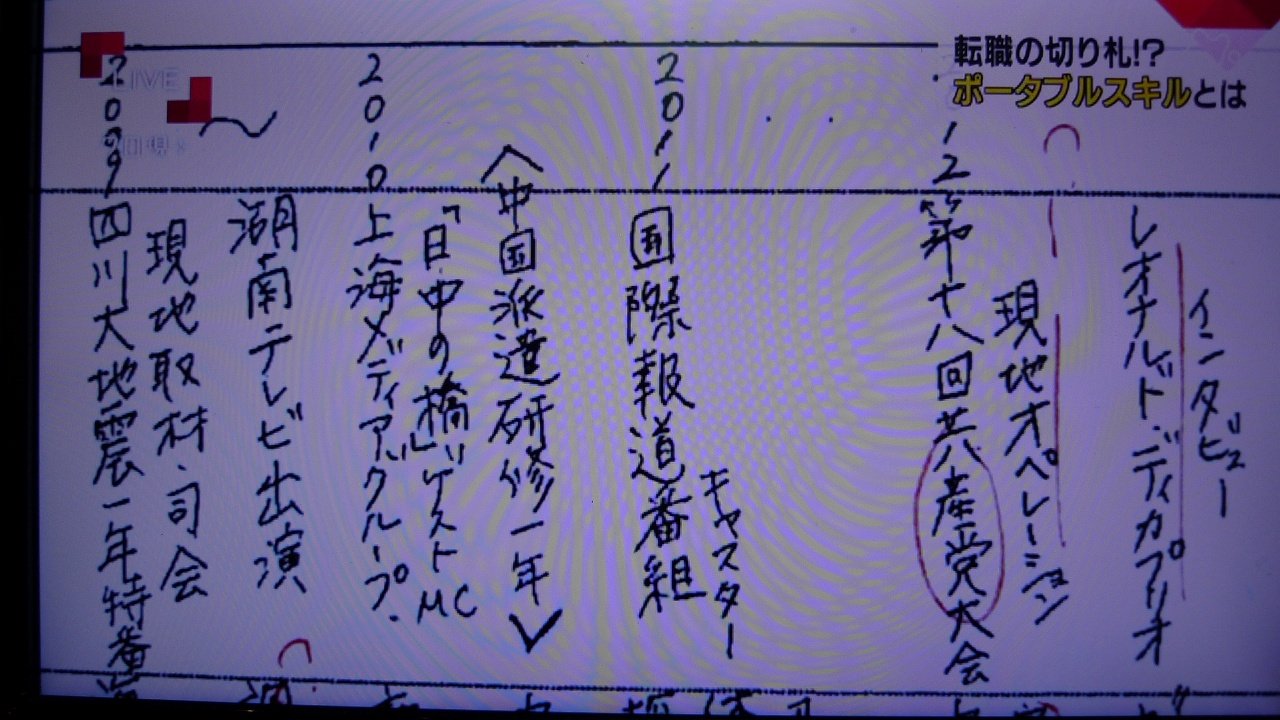 転職の切り札!?
ポータブルスキルとは
LIVE
インタビュー
レオナルド・ディカプリオ
現地オペレーション
12 第十八回共産党大会
キャスター
2011 国際報道番組
〈中国派遣研修一年〉
「日中の橋」ゲストMC
2010 上海メディアグループ・
湖南テレビ出演
〜
現地取材・司会
2009 四川大地震一年特番